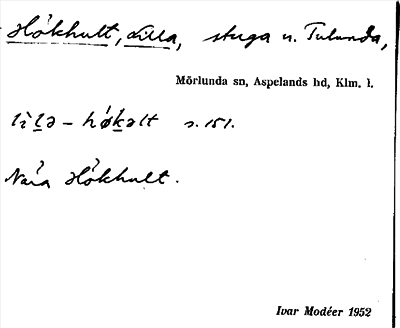 Hökhult, Lilla, stuga u. Tulunda,
Mörlunda sn, Aspelands hd, Klm. l.
lìlə - hø̀kəlt s. 151.
Nära Hökhult.
Ivar Modéer 1952